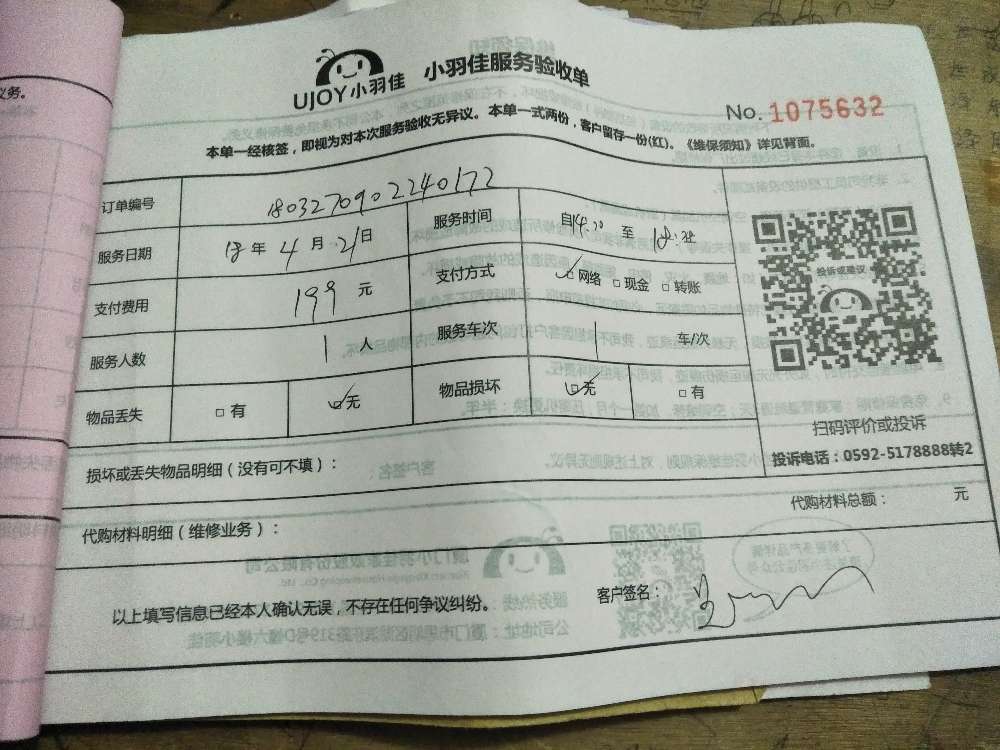 UJOY小羽佳 小羽佳服务验收单
No. 1075632
本单一经核签，即视为对本次服务验收无异议。本单一式两份，客户留存一份(红)。《维保须知》详见背面。
订单编号 1803270902240172
服务日期 18年4月21日 服务时间 自14:00 至
支付费用 199元 支付方式 ☑网络 □现金 □转账
服务人数 1人 服务车次 1 车/次
物品丢失 □有 ☑无 物品损坏 ☑无 □有
投诉或建议
扫码评价或投诉
投诉电话：0592-5178888转2
损坏或丢失物品明细（没有可不填）：
代购材料明细（维修业务）： 代购材料总额： 元
以上填写信息已经本人确认无误，不存在任何争议纠纷。 客户签名：
义务。